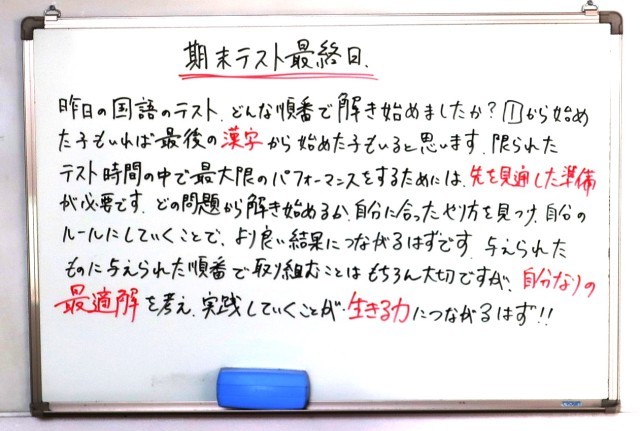 期末テスト最終日.
昨日の国語のテスト.どんな順番で解き始めましたか?①から始め
た子もいれば最後の漢字から始めた子もいると思います.限られた
テスト時間の中で最大限のパフォーマンスをするためには、先を見通した準備
が必要です.どの問題から解き始めるか、自分に合ったやり方を見つけ、自分の
ルールにしていくことで、より良い結果につながるはずです.与えられた
ものに与えられた順番で取り組むことはもちろん大切ですが、自分なりの
最適解を考え、実践していくことが.生きる力につながるはず!!